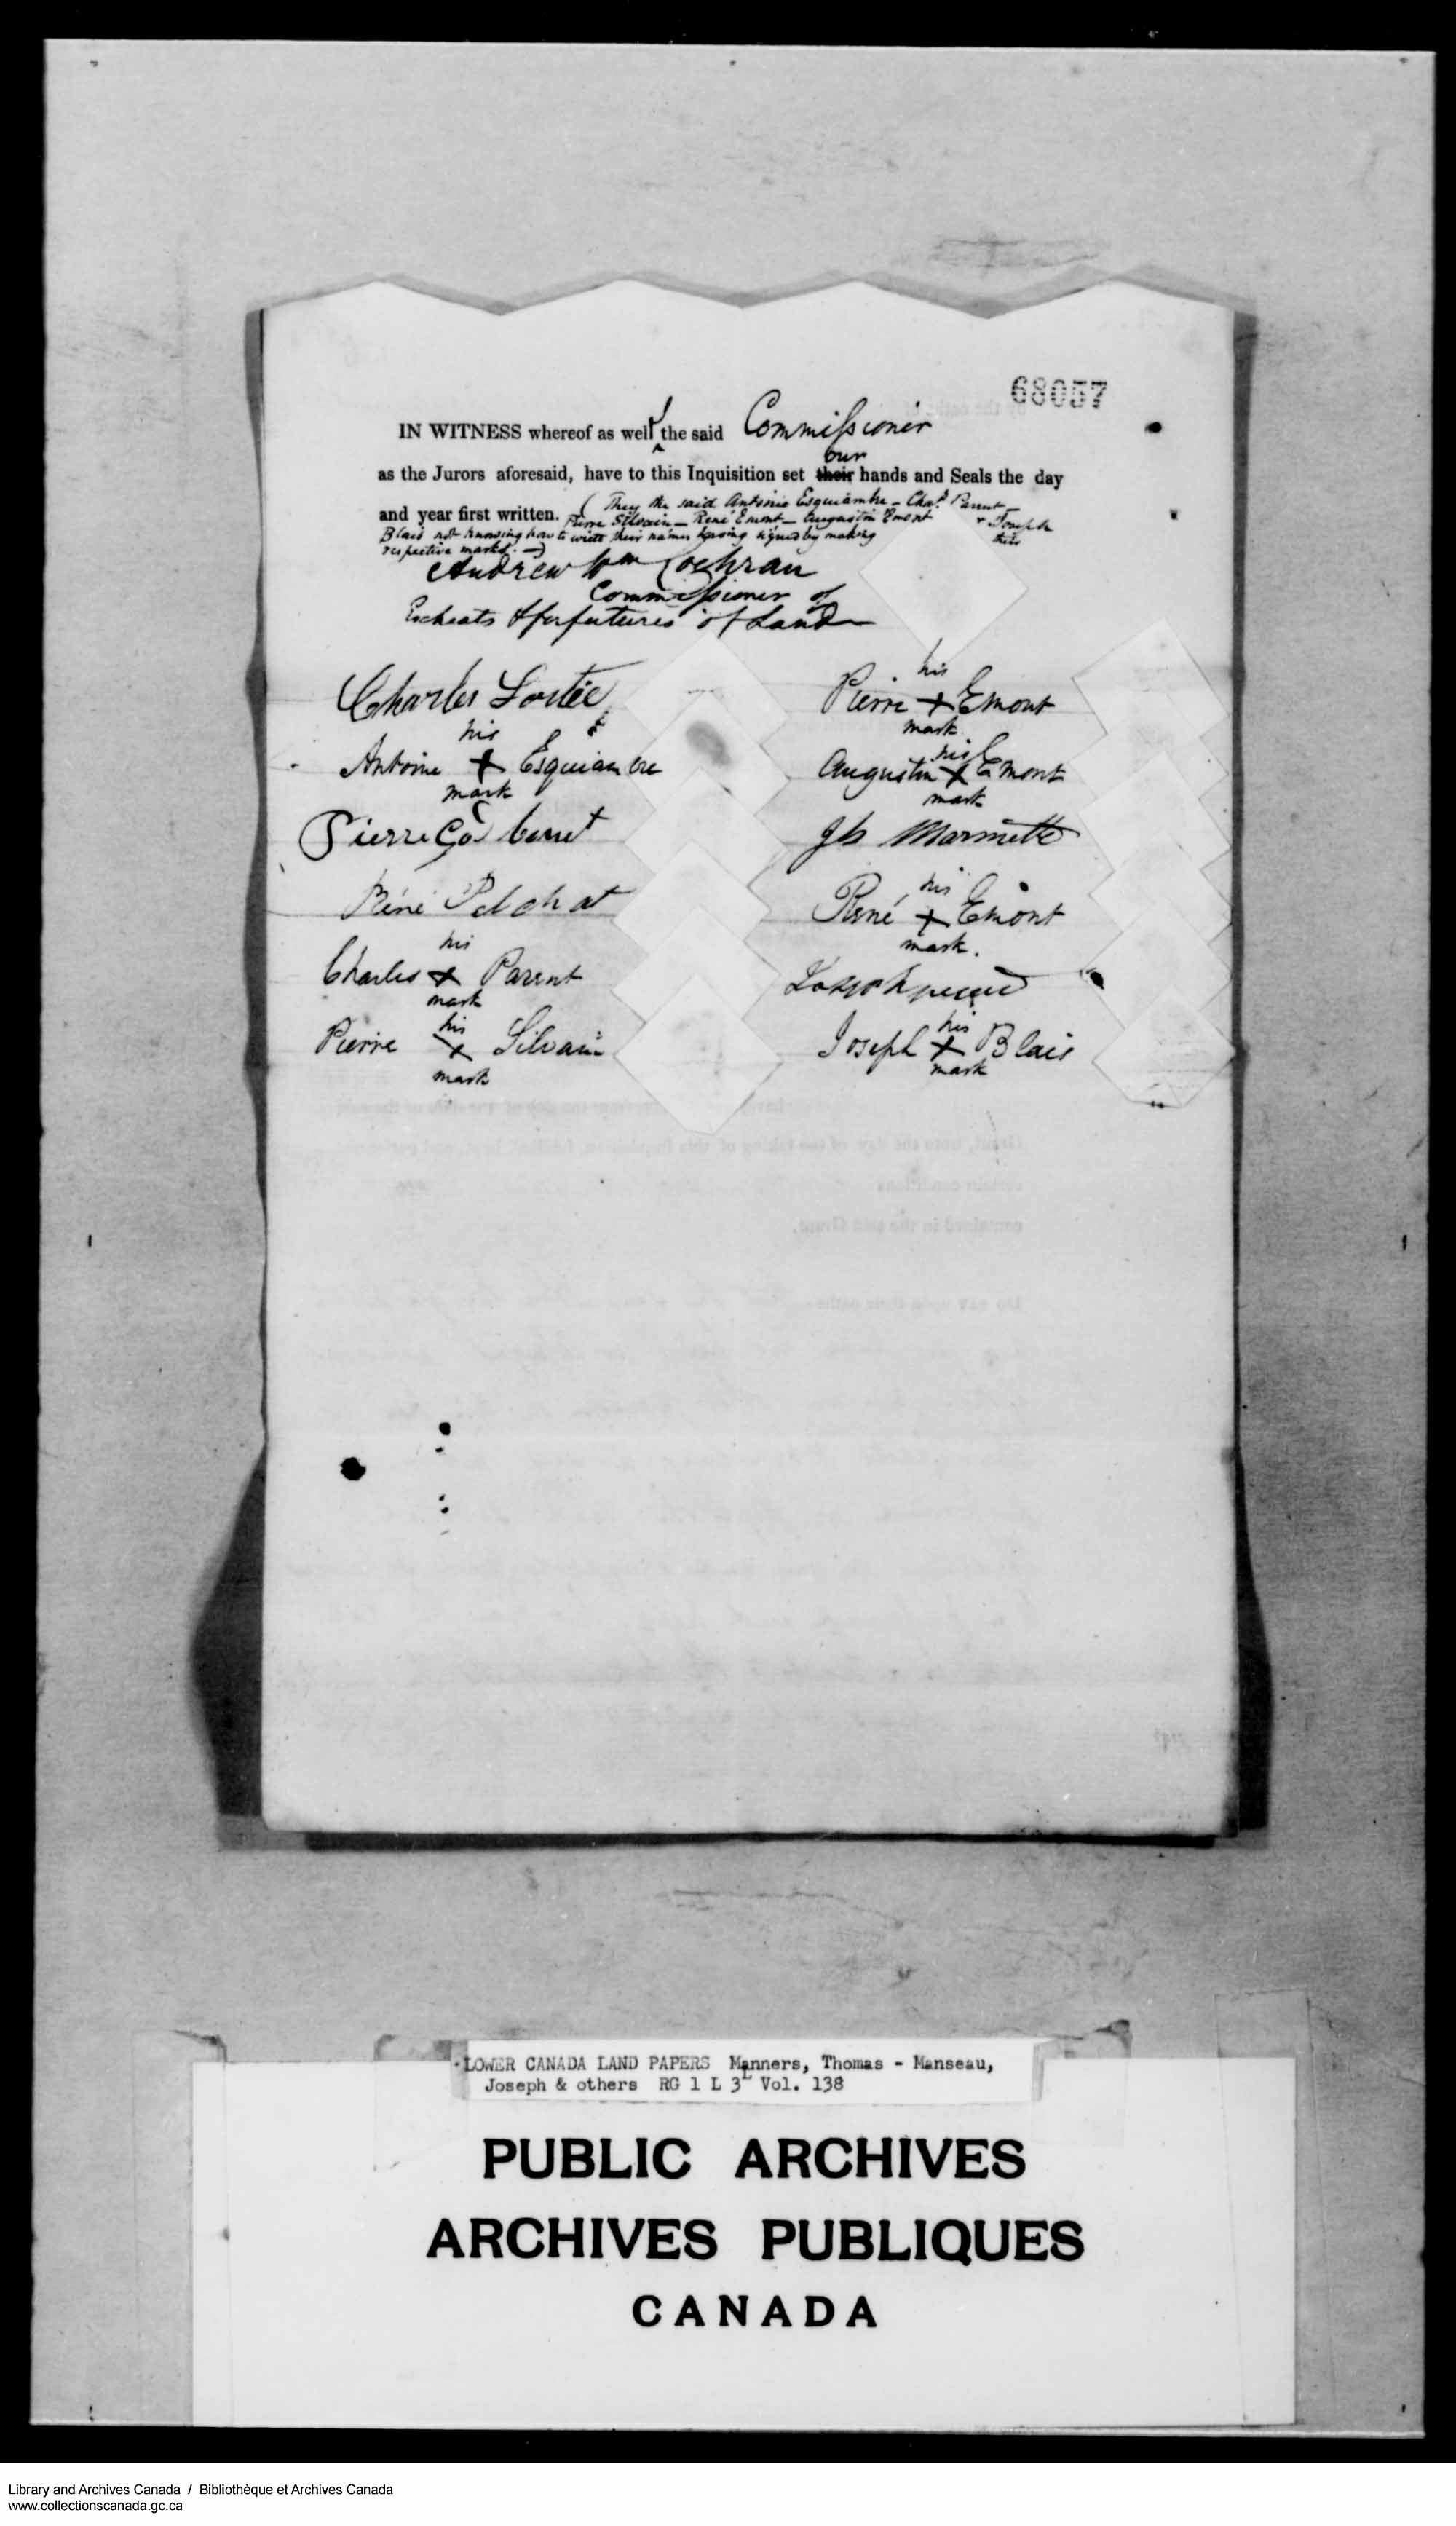 68057
IN WITNESS whereof as well I the said Commissioner
as the Jurors aforesaid, have to this Inquisition set their our hands and Seals the day
and year first written. (They the said Antoine Esquiambre – Chas. Parent –
Pierre Silvain – René Emont – Augustin Emont & Joseph
Blais not knowing how to write their names having signed by making their
respective marks. –)
Andrew Wm Cochran
Commissioner of
Escheats & forfeitures of Land
Charles Lortie
his
Antoine + Esquiambre
mark
Pierre
René Pelchat
his
Charles + Parent
mark
his
Pierre + Silvain
mark
his
Pierre + Emont
mark
his
Augustin + Emont
mark
Js Marmette
his
René + Emont
mark.
his
Joseph + Blais
mark
LOWER CANADA LAND PAPERS Manners, Thomas - Manseau,
Joseph & others RG 1 L 3L Vol. 138
PUBLIC ARCHIVES
ARCHIVES PUBLIQUES
CANADA
Library and Archives Canada / Bibliothèque et Archives Canada
www.collectionscanada.gc.ca